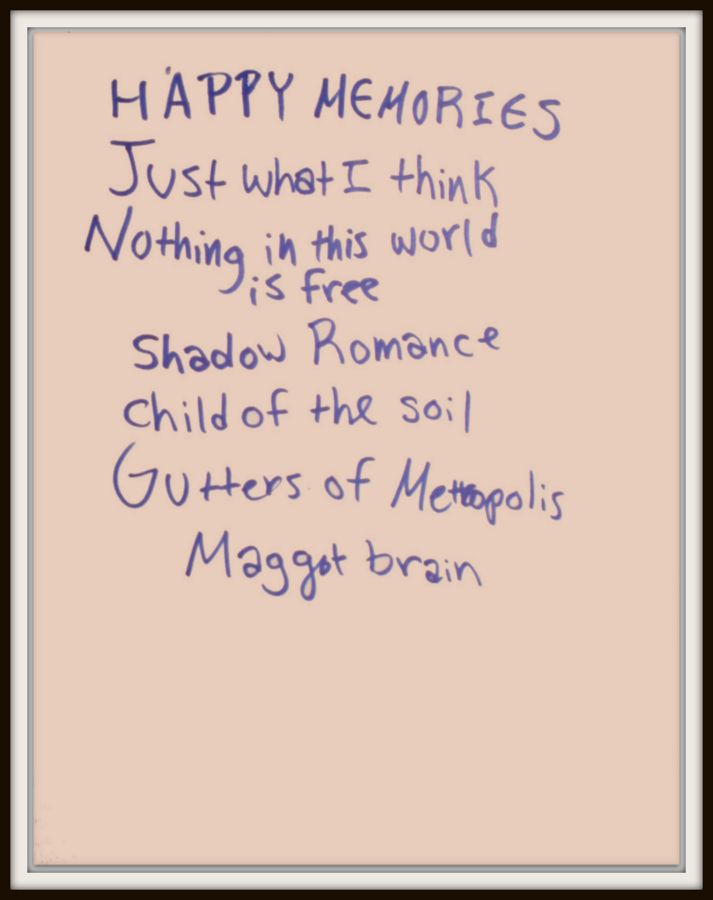 HAPPY MEMORIES
Just what I think
Nothing in this world
is free
Shadow Romance
Child of the soil
Gutters of Metropolis
Maggot brain